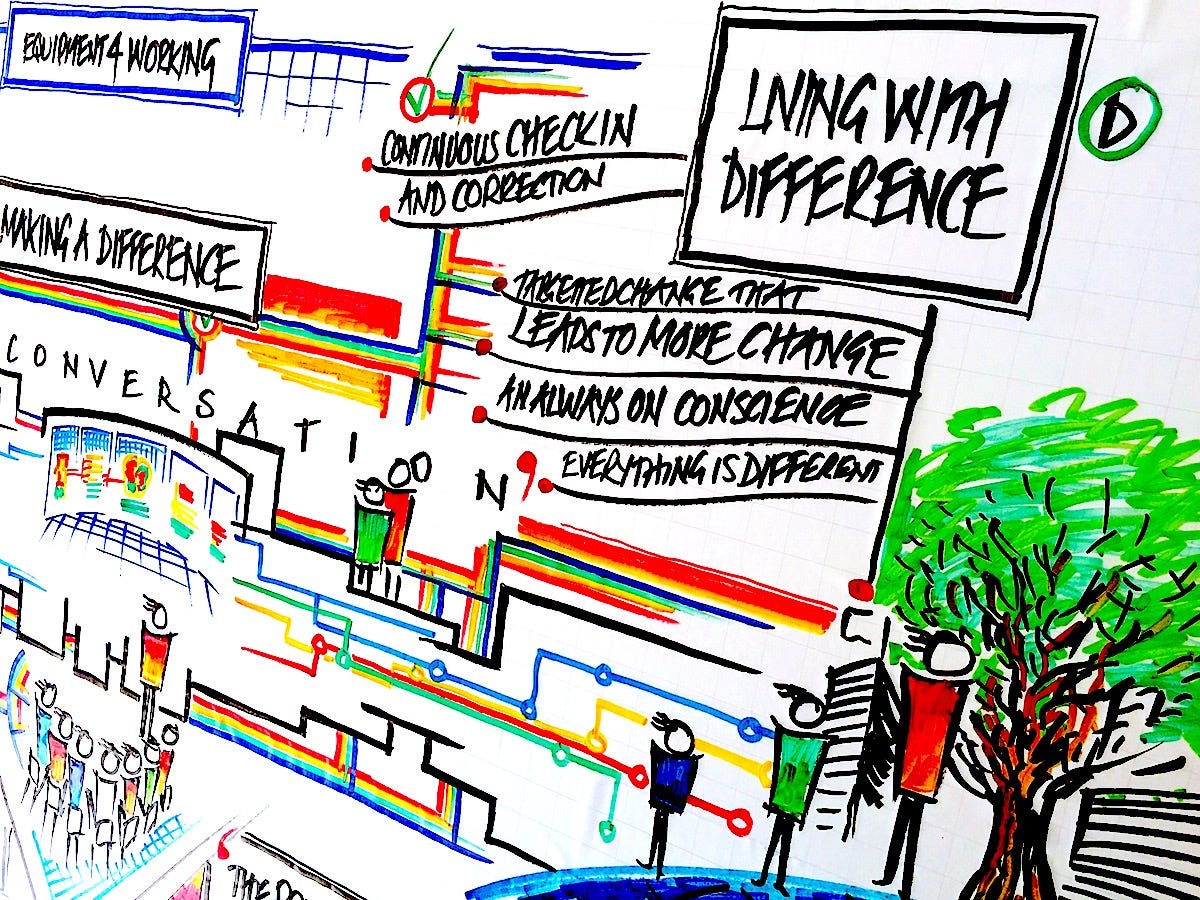 EQUIPMENT 4 WORKING
LIVING WITH
DIFFERENCE
D
CONTINUOUS CHECK IN
AND CORRECTION
MAKING A DIFFERENCE
TARGETTED CHANGE THAT
LEADS TO MORE CHANGE
AN ALWAYS ON CONSCIENCE
EVERYTHING IS DIFFERENT
CONVERSATI N
THE DO